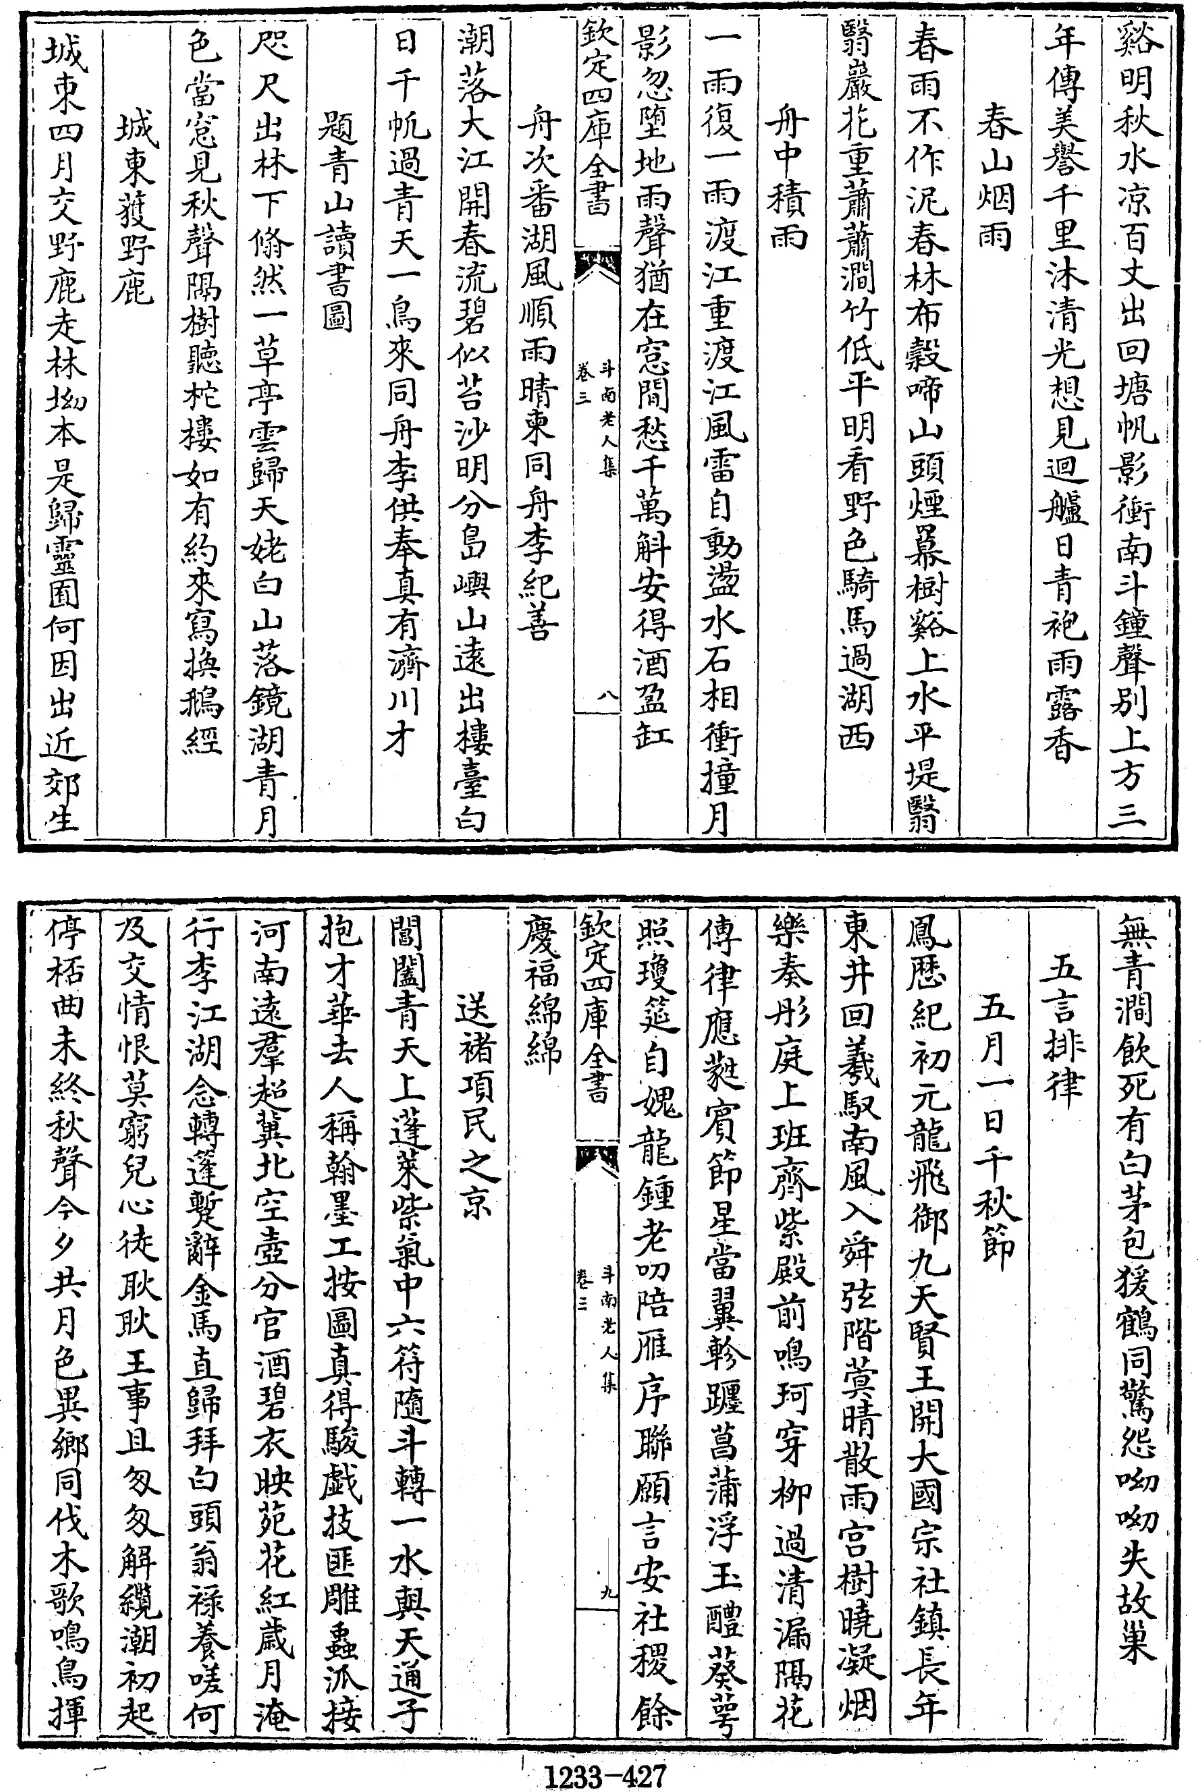 谿明秋水凉百丈出回塘帆影衝南斗鐘聲别上方三
年傳美譽千里沐清光想見迴艫日青袍雨露香
春山烟雨
春雨不作泥春林布穀啼山頭煙羃樹谿上水平堤翳
翳巖花重蕭蕭澗竹低平明看野色騎馬過湖西
舟中積雨
一雨復一雨渡江重渡江風雷自動盪水石相衝撞月
影忽墮地雨聲猶在窓間愁千萬斛安得酒盈缸
欽定四庫全書
斗南老人集
卷三
八
舟次番湖風順雨晴柬同舟李紀善
潮落大江開春流碧似苔沙明分島嶼山遠出樓臺白
日千帆過青天一鳥來同舟李供奉真有濟川才
題青山讀書圖
咫尺出林下翛然一草亭雲歸天姥白山落鏡湖青月
色當窓見秋聲隔樹聽柁樓如有約來寫換鵝經
城東獲野鹿
城東四月交野鹿走林坳本是歸靈囿何因出近郊生
無青澗飲死有白茅包猨鶴同驚怨呦呦失故巢
五言排律
五月一日千秋節
鳳厯紀初元龍飛御九天賢王開大國宗社鎮長年
東井回羲馭南風入舜弦階蓂晴散雨宫樹曉凝烟
樂奏彤庭上班齊紫殿前鳴珂穿柳過清漏隔花
傳律應蕤賓節星當翼軫躔菖蒲浮玉醴葵萼
照瓊筵自媿龍鍾老叨陪雁序聯願言安社稷餘
欽定四庫全書
斗南老人集
卷三
九
慶福綿綿
送禇項民之京
閶闔青天上蓬萊紫氣中六符隨斗轉一水與天通子
抱才華去人稱翰墨工按圖真得駿戲技匪雕蟲泒接
河南遠羣超冀北空壺分官酒碧衣映苑花紅歳月淹
行李江湖念轉蓬蹔辭金馬直歸拜白頭翁禄養嗟何
及交情恨莫窮兒心徒耿耿王事且匆匆解纜潮初起
停桮曲未終秋聲今夕共月色異鄉同伐木歌鳴鳥揮
1233-427